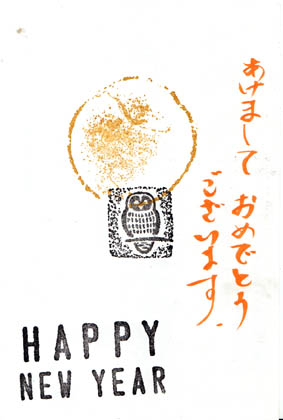 あけまして おめでとう
ございます.
HAPPY
NEW YEAR